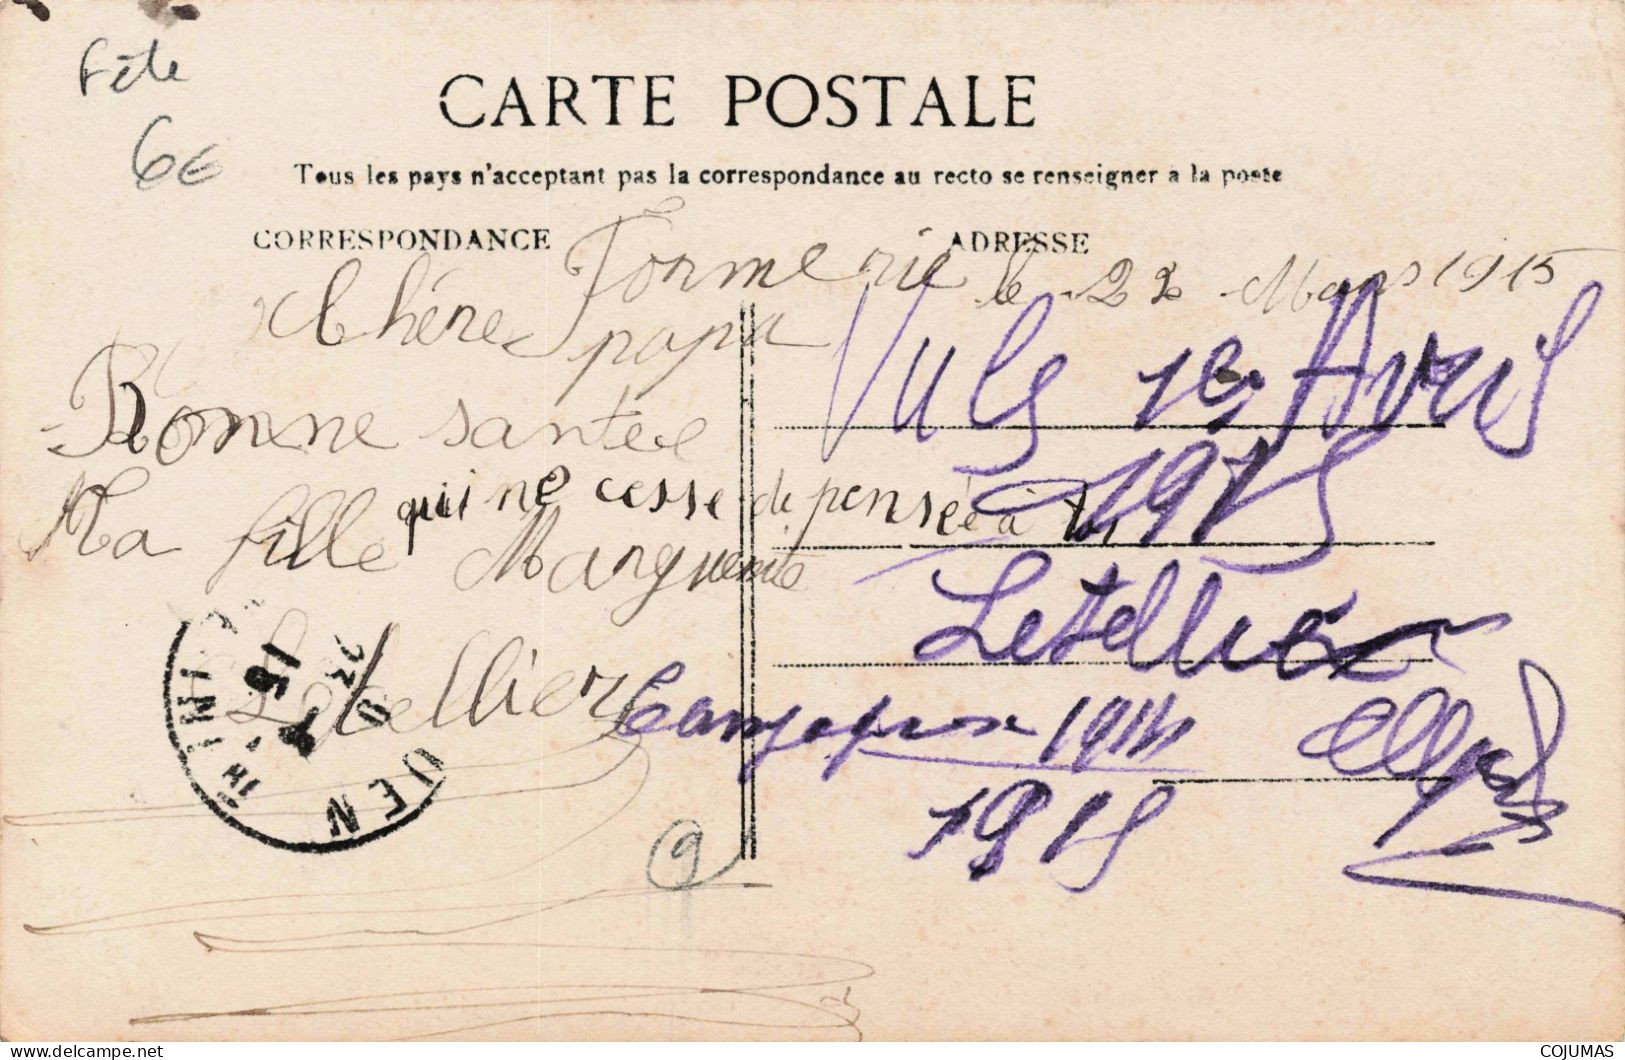 Fête
6€
CARTE POSTALE
Tous les pays n'acceptant pas la correspondance au recto se renseigner à la poste
CORRESPONDANCE
ADRESSE
Formerie le 22 Mars 1915
Chére papa
Bonne santee
Ma fille qui ne cesse de pensée à toi
Marguerite
Letellier
Vu le 1er Avril
1915
Letellier
Campagne 1914
1915
9
15
COJUMAS